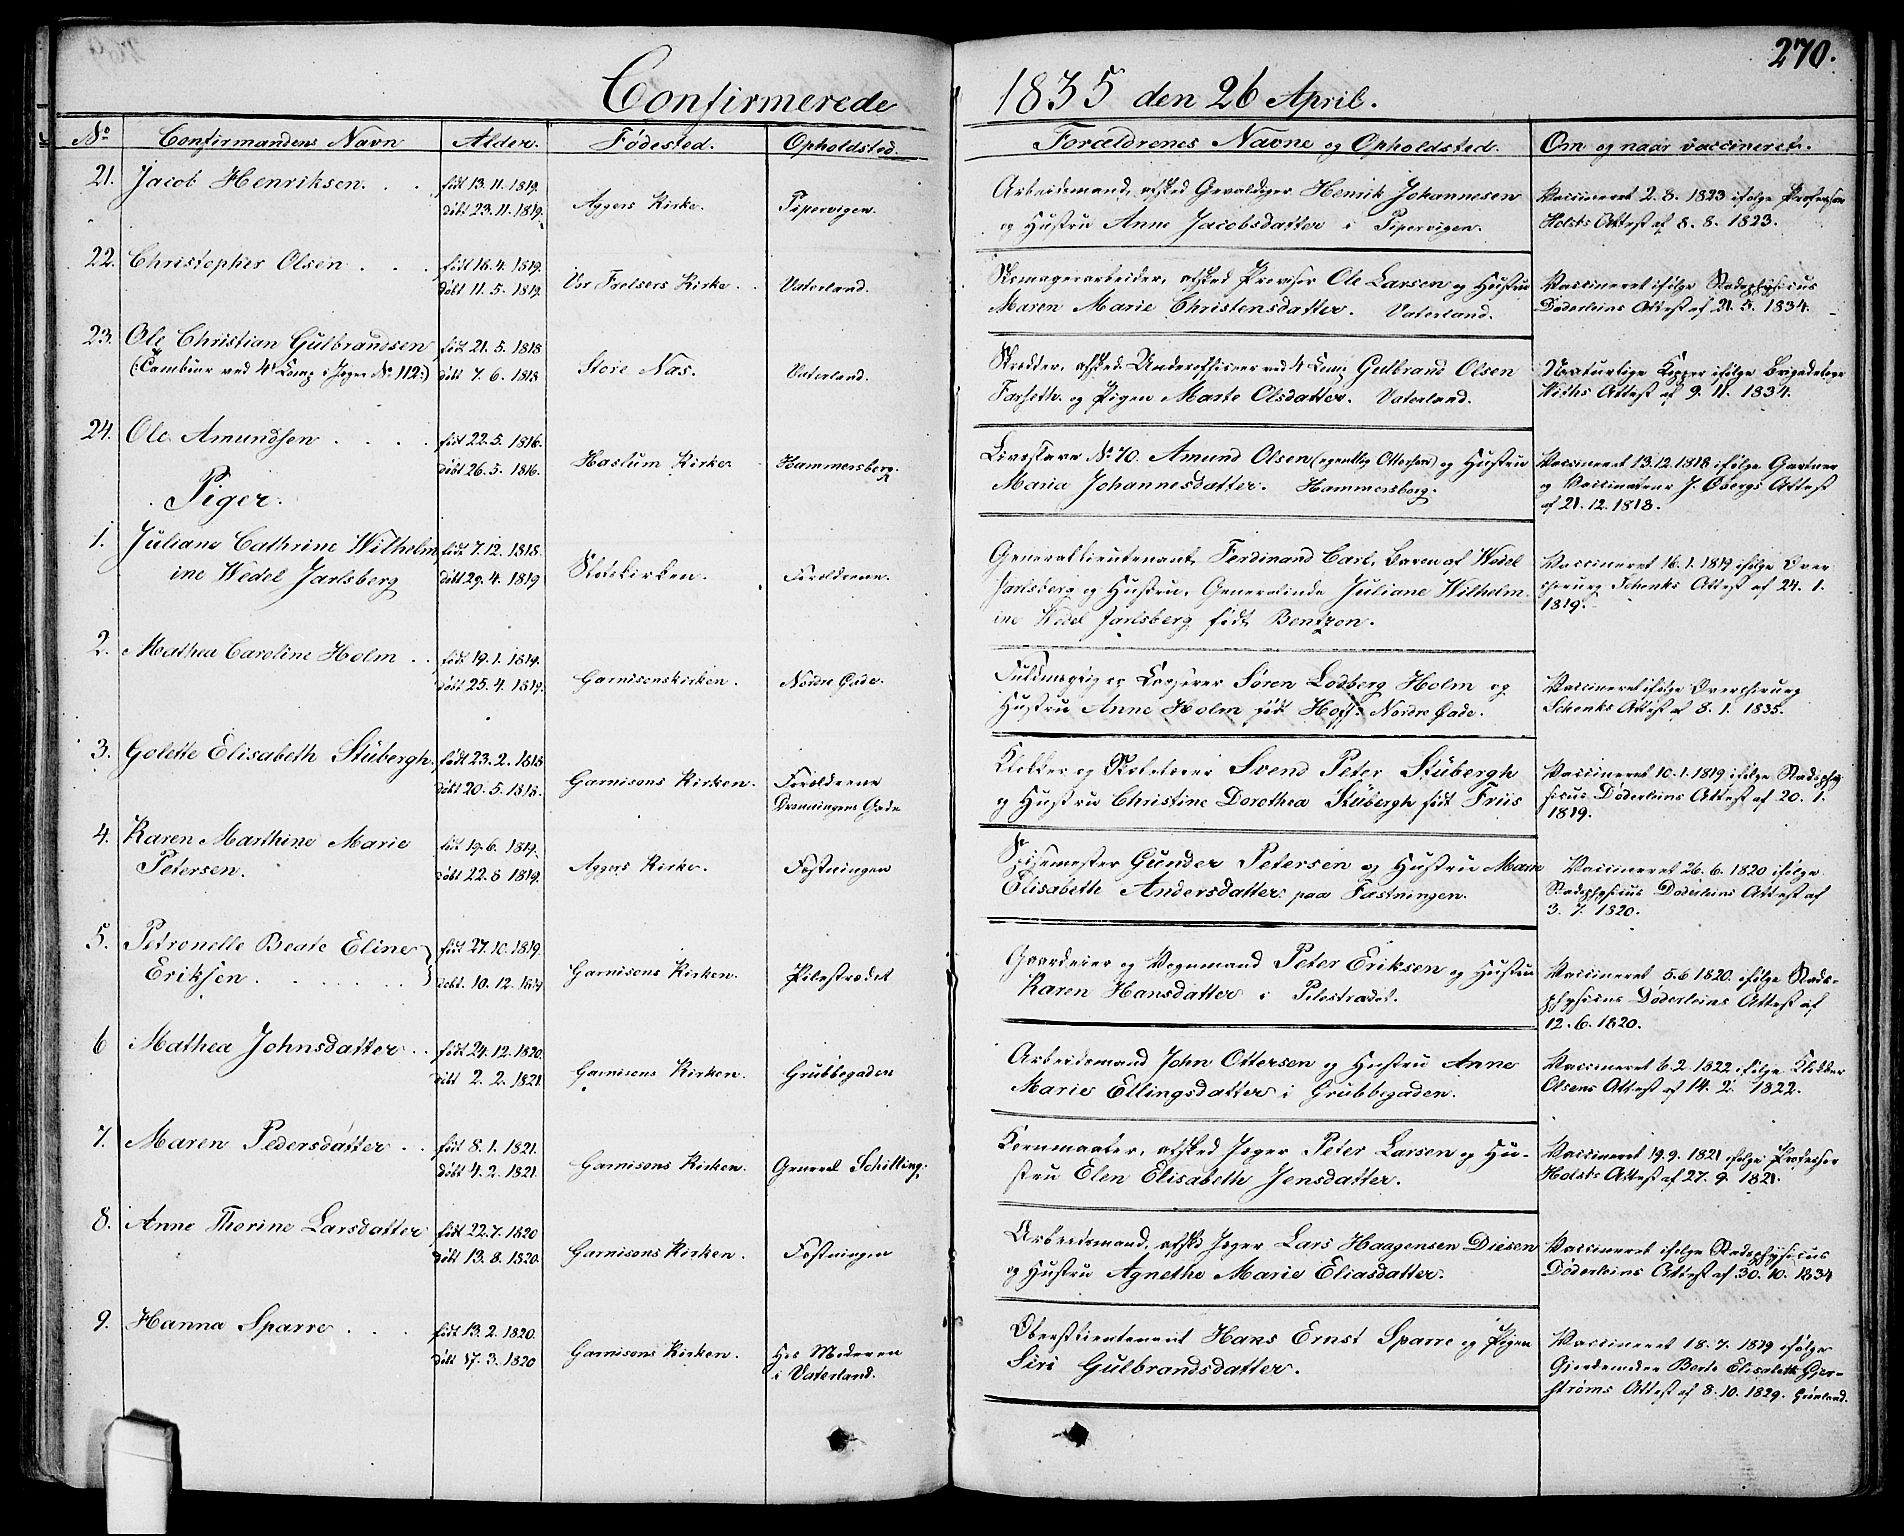 270.
Confirmerede 1835 den 26 April.
No Confirmandens Navn Alder. Fødested. Opholdsted. Forældrenes Navne og Opholdsted. Om og naar vaccineret.
21. Jacob Henriksen. . . født 13. 11. 1819. Arbeidsmand, afsked Gevaldiger Henrik Johannesen Vaccineret 2. 8. 1823 ifølge Professor
døbt 23. 11. 1819. Aggers Kirke. Pipervigen. og Hustru Anne Jacobsdatter i Pipervigen. Holsts Attest af 8. 8. 1823.
22. Christopher Olsen . . . født 16. 4. 1819. Skomagerarbeider, afsked Provisor Ole Larsen og Hustru Vaccineret ifølge Stadsphysicus
døbt 11. 5. 1819. Vor Frelsers Kirke. Vaterland. Maren Marie Christensdatter. Vaterland. Døderleins Attest af 21. 5. 1834.
23. Ole Christian Gulbrandsen født 21. 5. 1818 Skrædder, afsked Underofficeer ved 4 Comp Gulbrand Olsen Naturlige Kopper ifølge Brigadelæge
(:Tambour ved 4de Comp: Jæger No. 112:) døbt 7. 6. 1818 Store Næs. Vaterland. Farseth. og Pigen Marte Olsdatter. Vaterland. Withs Attest af 9. 11. 1834.
24. Ole Amundsen . . . . født 22. 5. 1816. Livsslave No. 70. Amund Olsen (egentlig Ottersen) og Hustru Vaccineret 13. 12. 1818 ifølge Gartner
døbt 26. 5. 1816. Haslum Kirke. Hammersborg. Maria Johannesdatter. Hammersborg. og Vaccinateur J. Øbergs Attest
af 21. 12. 1818.
Piger.
1. Juliane Cathrine Wilhelm født 7. 12. 1818. Generallieutenant, Ferdinand Carl, Baron af Wedel Vaccineret 16. 1. 1819 ifølge Over
ine Wedel Jarlsberg døbt 29. 4. 1819 Slotskirken. Forældrene. Jarlsberg og Hustru, Generalinde Juliane Wilhelm chirurg Schenks Attest af 24. 1.
ine Wedel Jarlsberg født Bentzon. 1819.
2. Mathea Caroline Holm . . født 19. 1. 1819. Fuldmægtig og Casserer Søren Lodberg Holm og Vaccineret ifølge Overchirurg
døbt 25. 4. 1819. Garnisonskirken. Nordre Gade. Hustru Anne Holm født Hoff. Nordre Gade. Schenks Attest af 8. 1. 1835.
3. Golette Elisabeth Stübergh. født 23. 2. 1818 Klokker og Skolelærer Svend Peter Stübergh Vaccineret 10. 1. 1819 ifølge Stadsphy
døbt 20. 5. 1818. Garnisons Kirken. Forældrene og Hustru Christine Dorothea Stübergh født Friis sicus Døderleins Attest af 20. 1.
Dronningens Gade 1819.
4. Karen Marthine Marie født 19. 6. 1819. Spisemester Gunder Petersen og Hustru Maren Vaccineret 26. 6. 1820 ifølge
Petersen. døbt 22. 8 1819. Aggers Kirke. Fæstningen Elisabeth Andersdatter. paa Fæstningen. Stadsphysicus Døderleins Attest af
3. 7. 1820.
5. Petronelle Beate Eline født 27. 10. 1819. Gaardeier og Vognmand Peter Eriksen og Hustru Vaccineret 5. 6 1820. ifølge Stads-
Eriksen . . . . . . døbt. 10. 12. 1819 Garnisons Kirken. Pilestrædet Karen Hansdatter i Pilestrædet. physicus Døderleins Attest af
12. 6. 1820.
6 Mathea Johnsdatter . . født 24. 12. 1820. Arbeidsmand John Ottersen og Hustru Anne Vaccineret 6. 2 1822 ifølge Klokker
døbt 2. 2. 1821. Garnisons Kirken. Grübbegaden Marie Ellingsdatter i Grübbegaden. Olsens Attest af 14. 2. 1822.
7. Maren Pedersdatter . . født 8. 1. 1821. Kornmaaler, afsked Jæger Peter Larsen og Hu- Vaccineret 19. 9. 1821 ifølge Professor
døbt 4. 2. 1821. Garnisons Kirken. General Schilling: stru Elen Elisabeth Jensdatter. Holsts Attest af 27. 9. 1821.
8. Anne Thorine Larsdatter født 22. 7. 1820 Arbeidsmand, afsked Jæger Lars Haagensen Diesen Vaccineret ifølge Stadsphysicus
døbt 13. 8. 1820. Garnisons Kirken. Fæstningen og Hustru Agnethe Marie Eliasdatter. Døderleins Attest af 30. 10. 1834
9. Hanna Sparre . . . født 13. 2. 1820. Oberstlieutenant Hans Ernst Sparre og Pigen Vaccineret 18. 7. 1819 ifølge
døbt 17. 3. 1820 Garnisons Kirken. Hos Moderen Siri Gulbrandsdatter. Gjordemoder Berte Elisabeth Gjer-
i Vaterland. strøms Attest af 8. 10. 1829. Grønland.